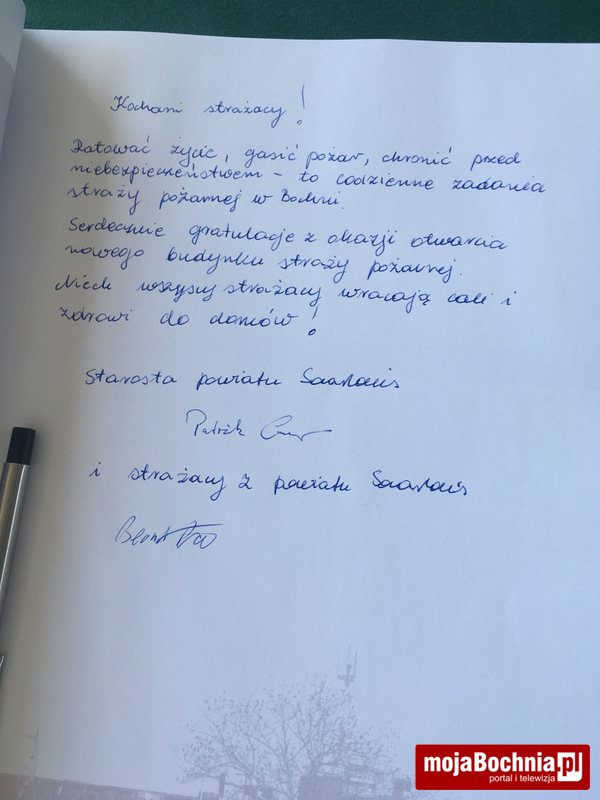 Kochani strażacy!
Ratować życie, gasić pożar, chronić przed
niebezpieczeństwem - to codzienne zadania
straży pożarnej w Bochni.
Serdecznie gratulacje z okazji otwarcia
nowego budynku straży pożarnej.
Niech wszyscy strażacy wracają cali i
zdrowi do domów!
Starosta powiatu Saarlouis
Patrik
i strażacy z powiatu Saarlouis
mojaBochnia.pl
portal i telewizja